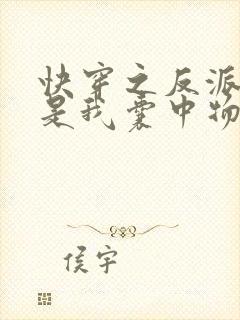 快穿之反派
是我囊中物
侯宇